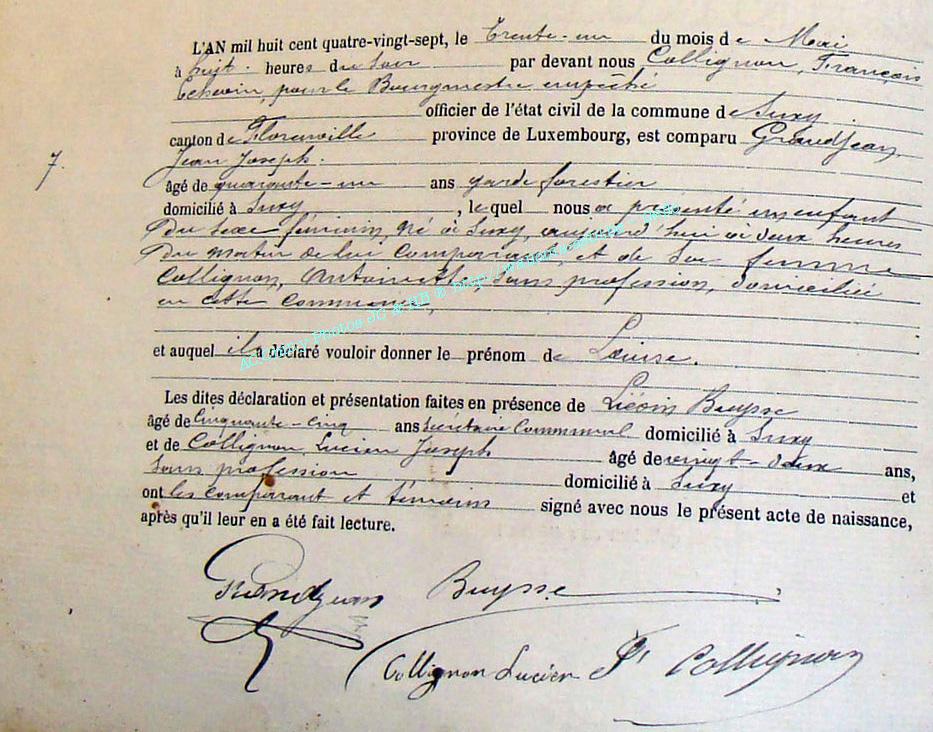 L'AN mil huit cent quatre-vingt-sept, le Trente-un du mois de Mai
à huit heures du soir par devant nous Collignon, François
Echevin, pour le Bourgmestre empêché
officier de l'état civil de la commune de Suxy
canton de Florenville province de Luxembourg, est comparu Grandjean,
Jean Joseph.
7.
âgé de quarante-un ans garde forestier
domicilié à Suxy, lequel nous a présenté un enfant
du sexe féminin, né à Suxy, aujourd'hui à deux heures
du matin de lui comparant, et de sa femme
Collignon, Antoinette, sans profession, domiciliée
en cette commune,
et auquel il a déclaré vouloir donner le prénom de Louise.
Les dites déclaration et présentation faites en présence de Buysse
âgé de Cinquante-cinq ans Secrétaire Communal domicilié à Suxy
et de Collignon Lucien Joseph âgé de vingt-deux ans,
sans profession domicilié à Suxy et
ont les comparant et témoins signé avec nous le présent acte de naissance,
après qu'il leur en a été fait lecture.
Grandjean Buysse
Collignon Lucien Fs Collignon